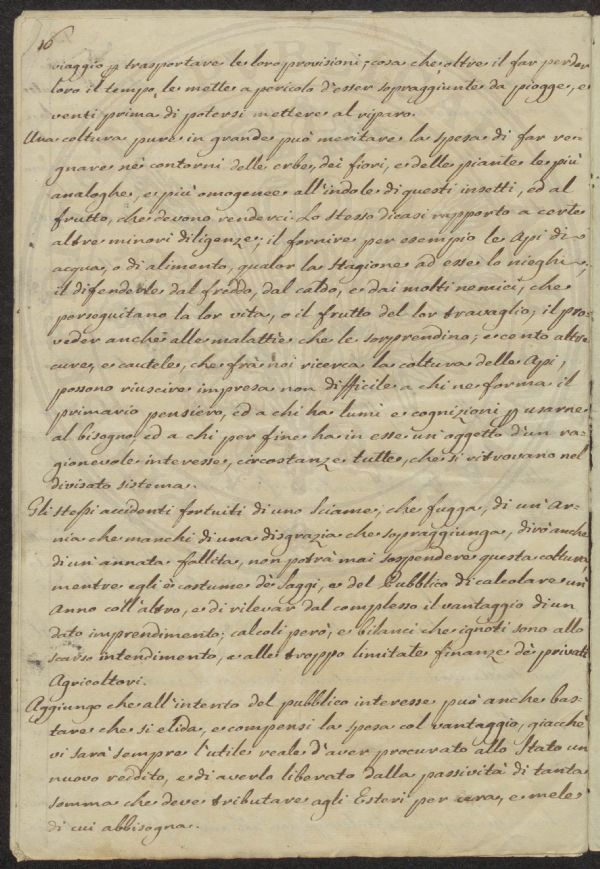 16
viaggio p trasportare le loro provisioni; cosa che, oltre il far perder
loro il tempo, le mette a pericolo d'esser sopraggiunte da piogge, e
venti prima di potersi mettere al riparo.
Una coltura pure in grande può meritare la spesa di far re-
gnare ne' contorni delle erbe, dei fiori, e delle piante le più
analoghe, e più omogenee all'indole di questi insetti, ed al
frutto, che devono renderci. Lo stesso dicasi rapporto a certe
altre minori diligenze; il fornire per esempio le Api di
acqua, o di alimento, qualor la Stagione ad esse lo nieghi,
il difenderle dal freddo, dal caldo, e dai molti nemici, che
perseguitano la lor vita, o il frutto del lor travaglio, il pro-
veder anche alle malattie che le sorprendino; e cento altre
cure, e cautele, che frà noi ricerca la coltura delle Api,
possono riuscire impresa non difficile a chi ne forma il
primario pensiero, ed a chi ha lumi e cognizioni p usarne
al bisogno, ed a chi per fine ha in esse un'oggetto d'un ra-
gionevole interesse, circostanze tutte, che si ritrovano nel
divisato sistema.
Gli stessi accidenti fortuiti di uno Sciame, che fugga, di un'Ar-
nia che manchi, di una disgrazia che sopraggiunga, dirò anche
di un'annata fallita, non potrà mai sospendere questa coltura,
mentre egli è costume de' Saggi, e del Pubblico di calcolare un'
Anno coll'altro, e di rilevar dal complesso il vantaggio di un
dato imprendimento; calcoli però, e bilanci che ignoti sono allo
scarso intendimento, e alle troppo limitate finanze de' privati
Agricoltori.
Aggiungo che all'intento del pubblico interesse può anche bas-
tare che si elida, e compensi la spesa col vantaggio, giacchè
vi sarà sempre l'utile reale d'aver procurato allo Stato un
nuovo reddito, e di averlo liberato dalla passività di tanta
somma che deve tributare agli Esteri per cera, e mele
di cui abbisogna.